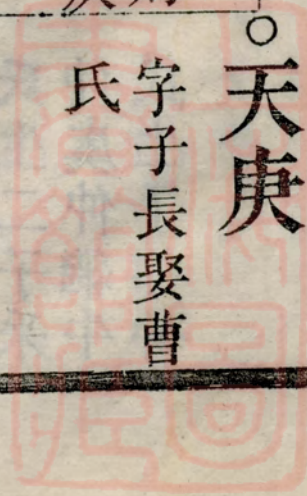 ○天庚
字子長娶曹
氏